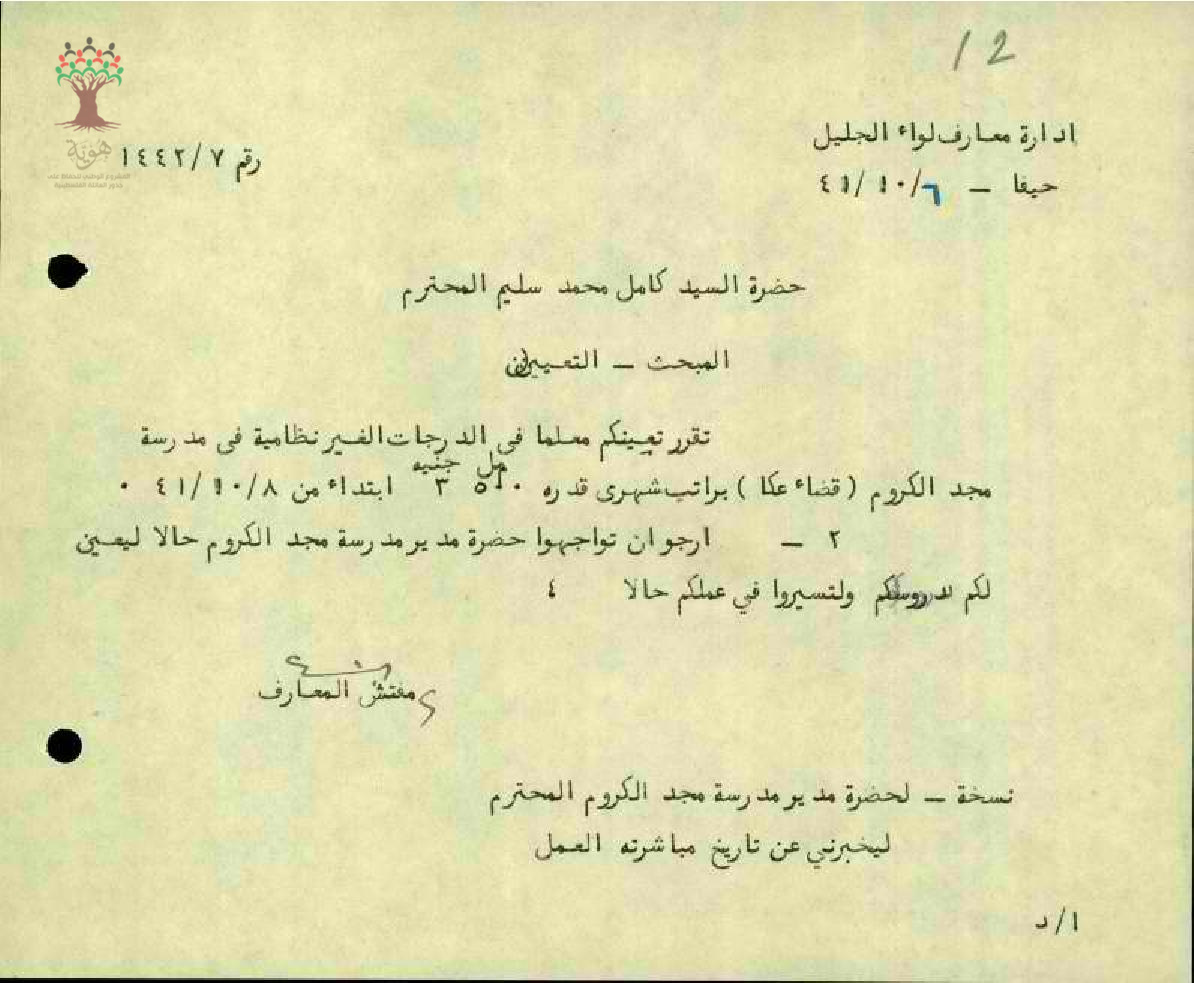 12
ادارة معارف لواء الجليل
رقم ١٤٤٢/٧
حيفا — ٤١/١٠/٦
هوية
حضرة السيد كامل محمد سليم المحترم
المبحث — التعيين
تقرر تعيينكم معلما في الدرجات الغير نظامية في مدرسة
مل جنيه
مجد الكروم ( قضاء عكا ) براتب شهرى قدره ٥٠٠ ٣ ابتداء من ٤١/١٠/٨ ٠
٢ — ارجو ان تواجهوا حضرة مدير مدرسة مجد الكروم حالا ليعين
لكم دروسكم ولتسيروا في عملكم حالا ٤
مفتش المعارف
نسخة — لحضرة مدير مدرسة مجد الكروم المحترم
ليخبرني عن تاريخ مباشرته العمل
ا/د